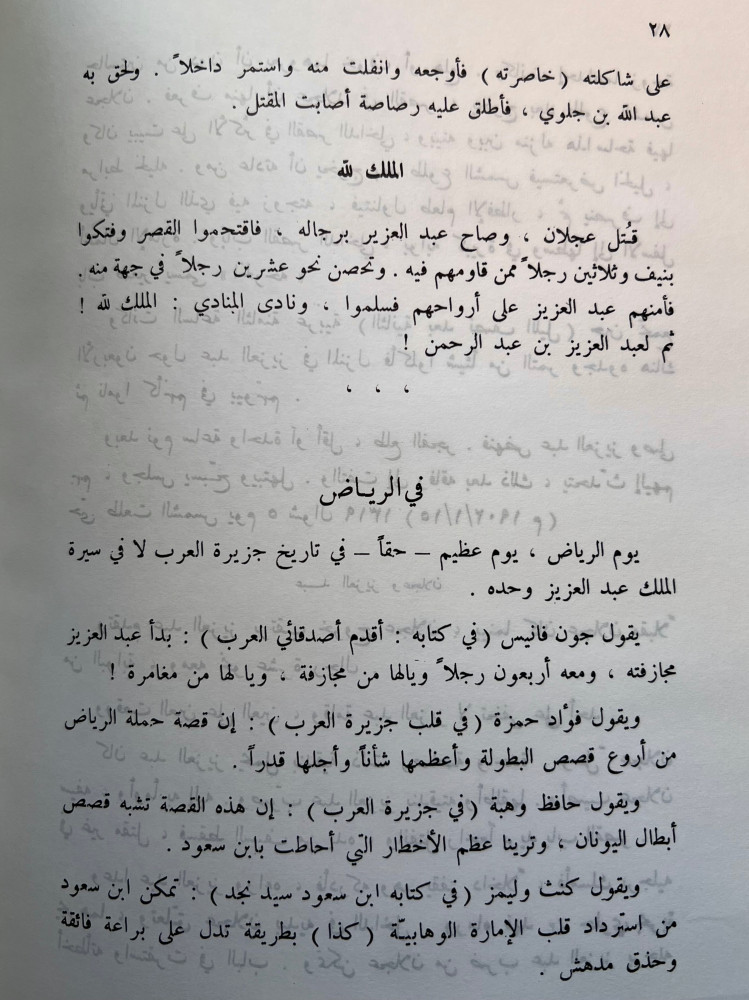 ٢٨
على شاكلته (خاصرته) فأوجعه وانفلت منه واستمر داخلاً . ولحق به
عبد الله بن جلوي ، فأطلق عليه رصاصة أصابت المقتل .
الملك لله
قُتل عجلان ، وصاح عبد العزير برجاله ، فاقتحموا القصر وفتكوا
بنيف وثلاثين رجلاً ممن قاومهم فيه . وتحصن نحو عشرين رجلاً في جهة منه .
فأمنهم عبد العزيز على أرواحهم فسلموا ، ونادى المنادي : الملك لله !
ثم لعبد العزيز بن عبد الرحمن !
، ، ،
في الرياض
يوم الرياض ، يوم عظيم – حقاً – في تاريخ جزيرة العرب لا في سيرة
الملك عبد العزيز وحده .
يقول جون فانيس (في كتابه : أقدم أصدقائي العرب) : بدأ عبد العزيز
مجازفته ، ومعه أربعون رجلاً ويالها من مجازفة ، ويا لها من مغامرة !
ويقول فوًاد حمزة (في قلب جزيرة العرب) : إن قصة حملة الرياض
من أروع قصص البطولة وأعظمها شأناً وأجلها قدراً .
ويقول حافظ وهبة (في جزيرة العرب) : إن هذه القصة تشبه قصص
أبطال اليونان ، وترينا عظم الأخطار التي أحاطت بابن سعود .
ويقول كنث وليمز (في كتابه ابن سعود سيد نجد) : تمكن ابن سعود
من استرداد قلب الإمارة الوهابيّة (كذا) بطريقة تدل على براعة فائقة
وحذق مدهش .